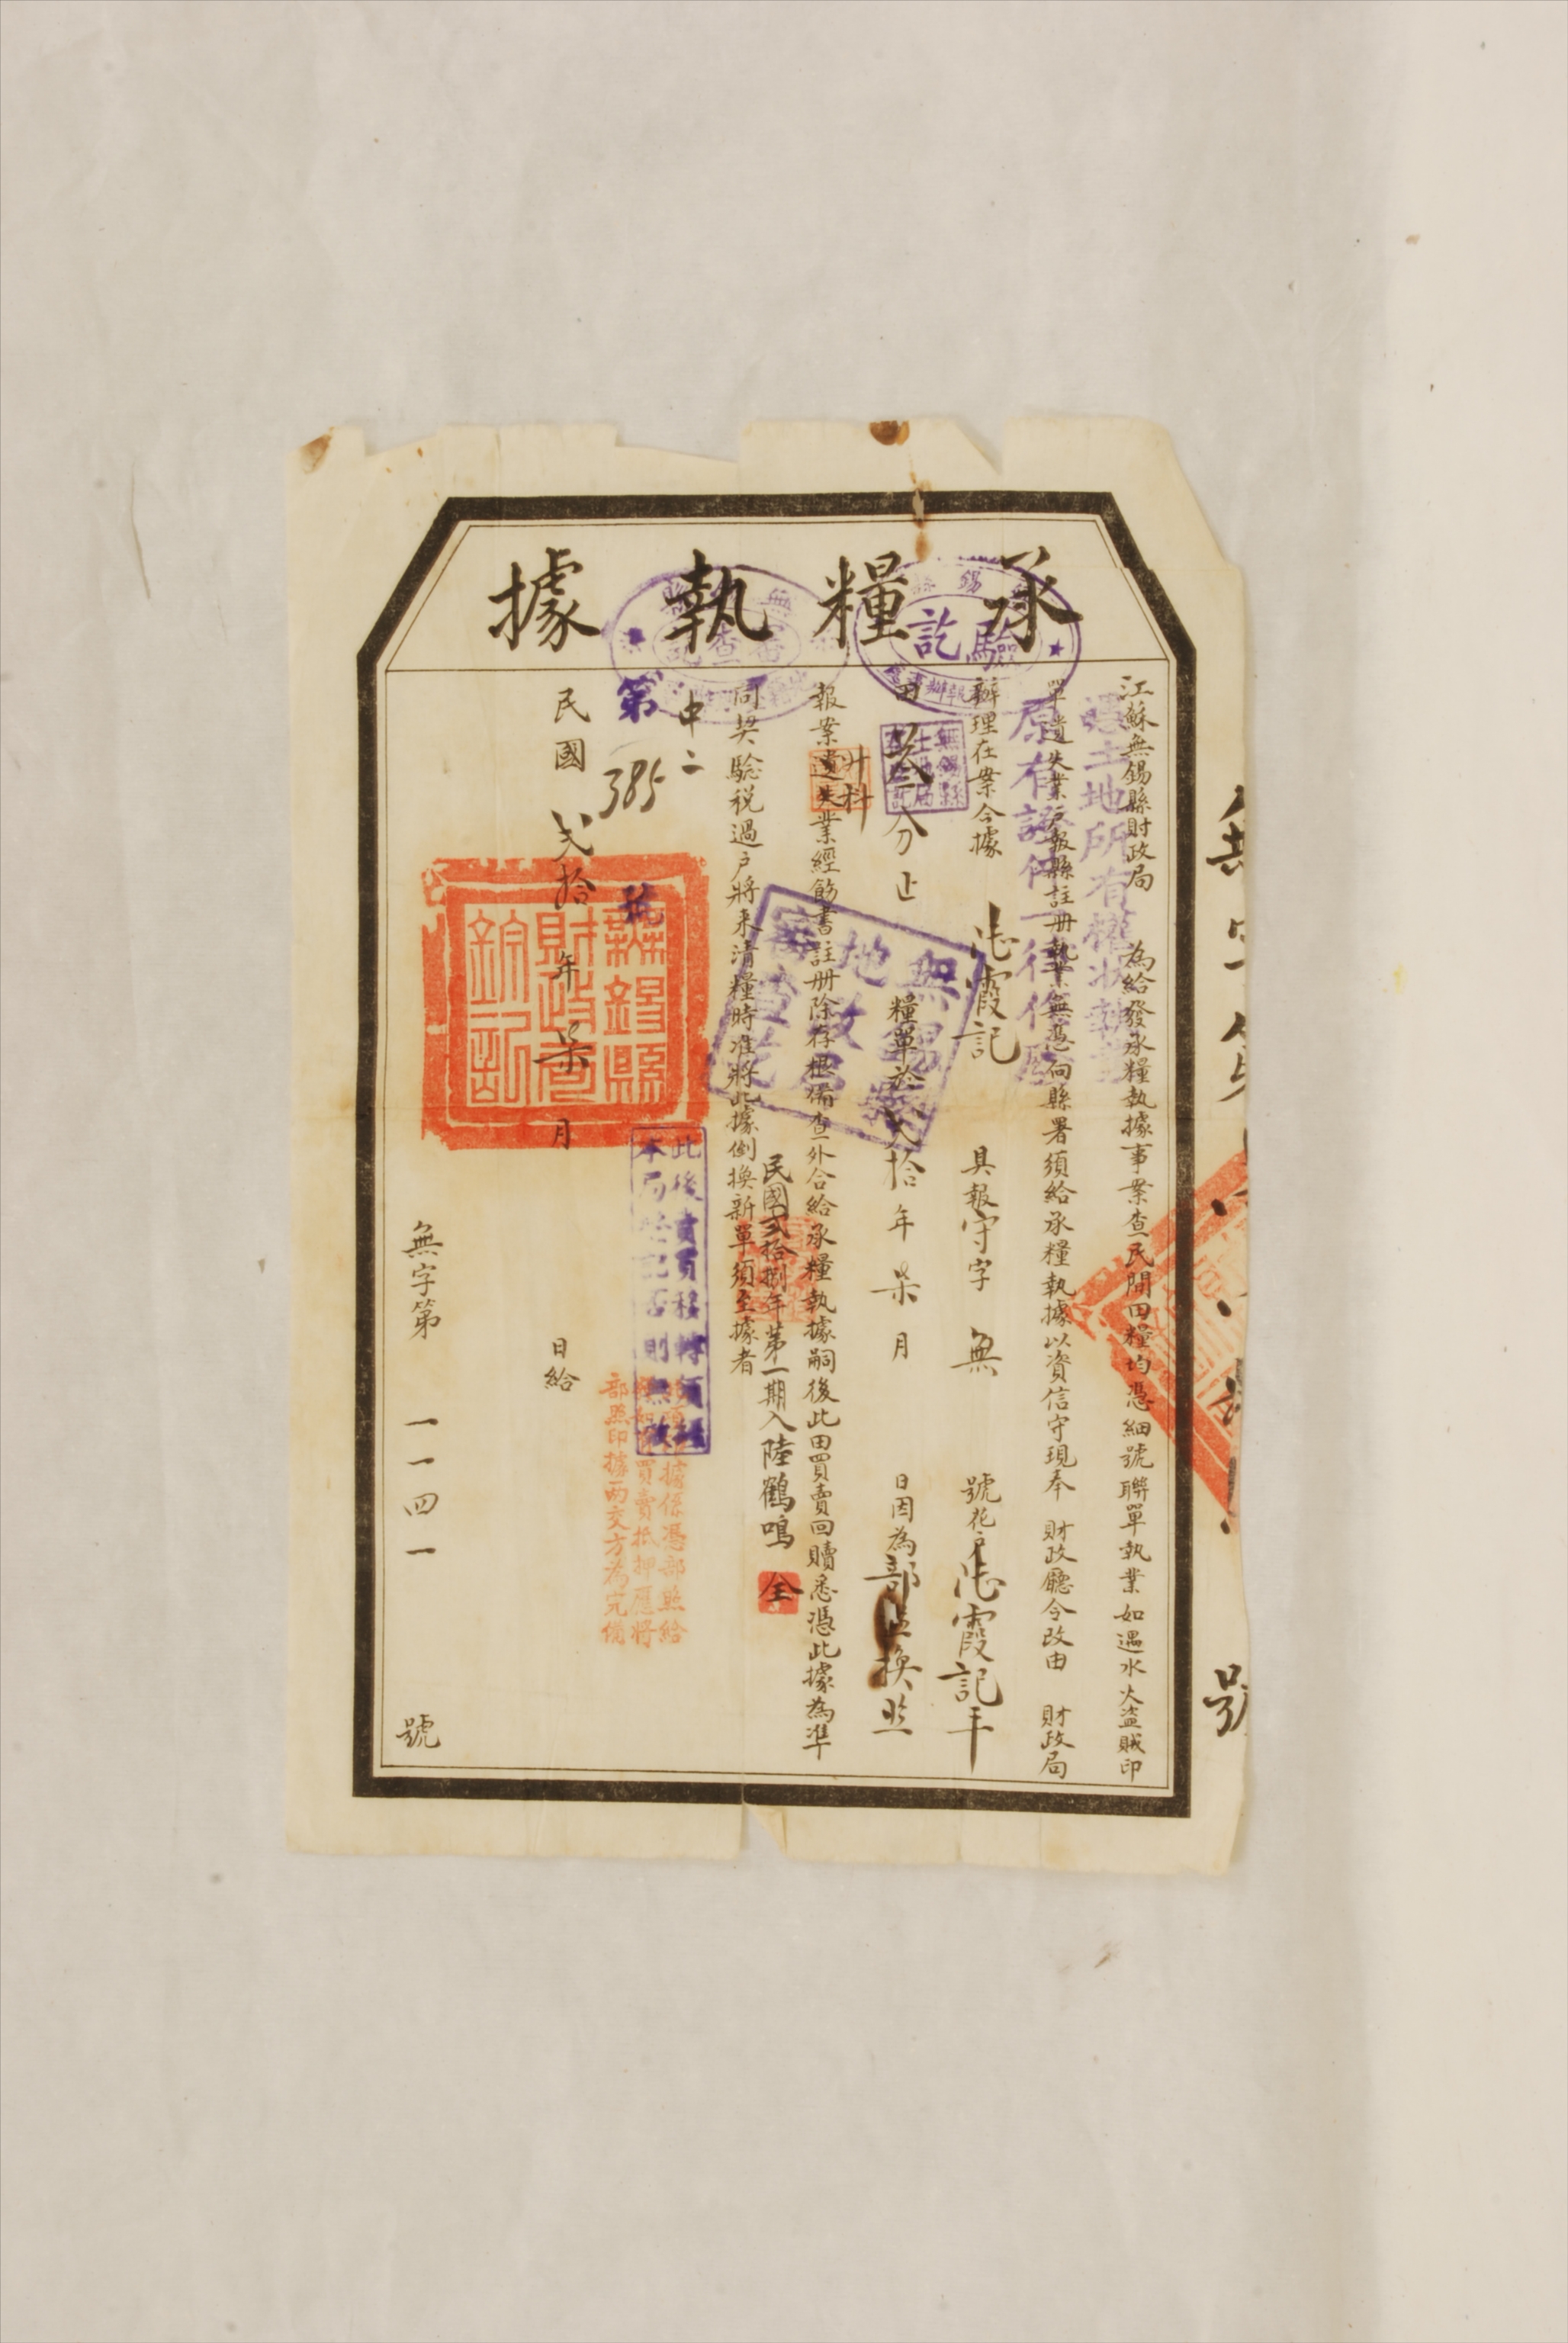 承糧執據
江蘇無錫縣財政局 為給發承糧執據事案查民間田糧均憑細號聯單執業如遇水火盜賊印
單遺失業戶報縣註冊執業無憑向縣署須給承糧執據以資信守現奉 財政廳令改由 財政局
辦理在案今據 霞記 具報守字 無 號花戶 霞記平
田 分止 糧單於弍拾年柒月 日因為部 換照
升科
報案遺失業經飭書註冊除存根備查外合給承糧執據嗣後此田買賣回贖悉憑此據為準
民國弍拾捌年第一期入陸鶴鳴
同契驗稅過戶將來清糧時准將此據倒換新單須至據者
中二
第 385 號
民國弍拾年柒月 日給
無字第 一一四一 號
驗訖
憑土地所有權狀執業
原有證件一律作廢
無錫縣地政局審查訖
無錫縣財政局鈐記
此後賣買移轉須
本局登記否則無效
據係憑部照給
買賣抵押應將
部照印據兩交方為完備